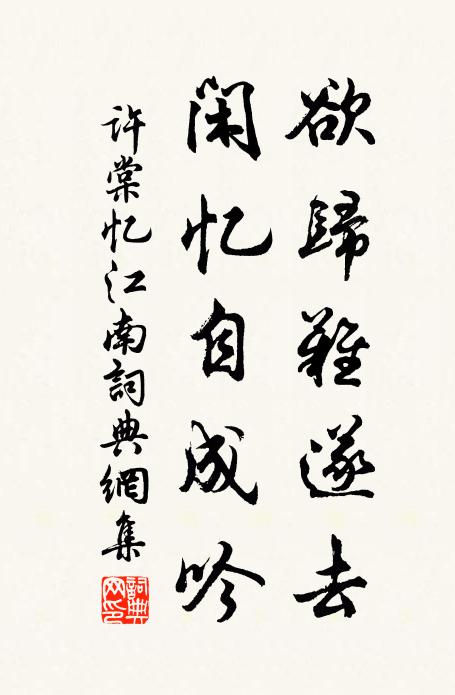 欲歸難遂去
閑忆自成吟
许棠忆江南詞典網集
詞典网印